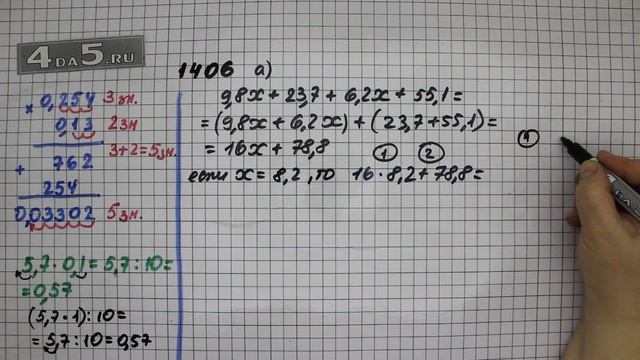 4DA5.RU
× 0,254 3 зн.
0,13 2 зн
3+2=5зн.
+ 762
254
0,03302 5 зн.
5,7 · 0,1 = 5,7 : 10 =
= 0,57
(5,7 · 1) : 10 =
= 5,7 : 10 = 0,57
1406 а)
9,8x + 23,7 + 6,2x + 55,1 =
= (9,8x + 6,2x) + (23,7 + 55,1) =
= 16x + 78,8
1 2
если x = 8,2, то 16 · 8,2 + 78,8 =
1